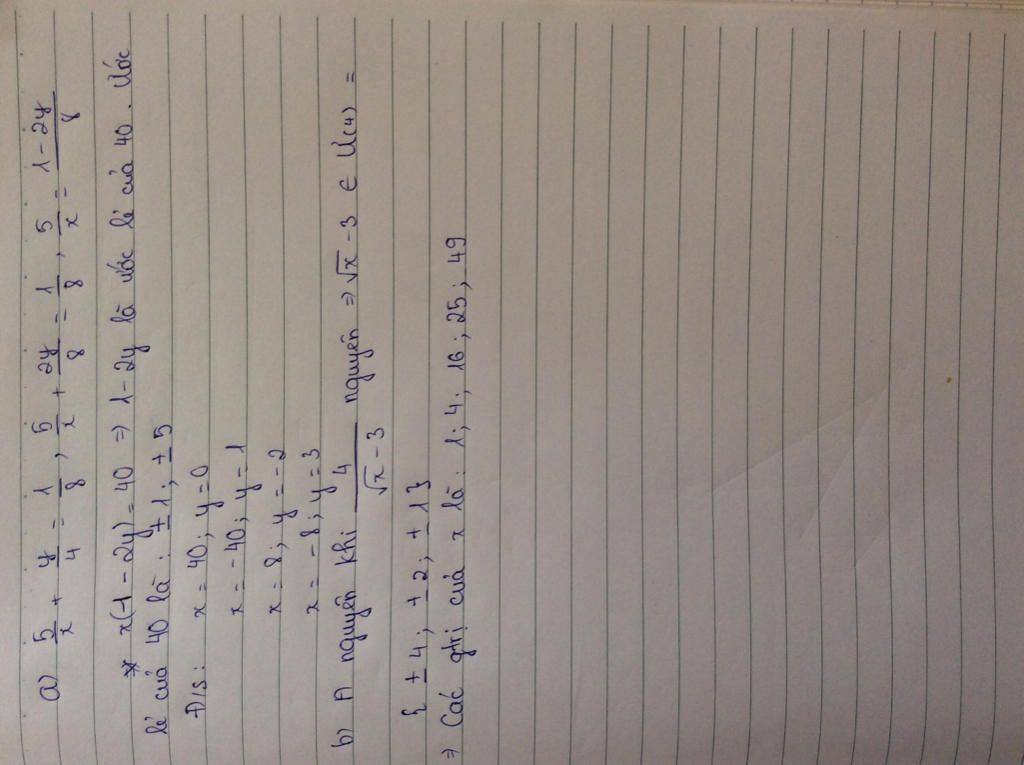 a) 5/x + y/4 = 1/8, 5/x + 2y/8 = 1/8, 5/x = 1-2y/8
* x(1-2y) = 40 => 1-2y là ước lẻ của 40. Ước
lẻ của 40 là: ±1; ±5
Đ/s: x = 40; y = 0
x = -40; y = 1
x = 8; y = -2
x = -8; y = 3
b) A nguyên khi 4/√x-3 nguyên => √x-3 ∈ Ư(4) =
{±4; ±2; ±1}
=> Các gtrị của x là: 1; 4; 16; 25; 49